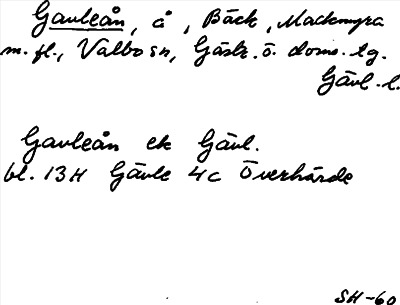 Gavleån, å, Bäck, Mackmyra
m. fl., Valbo sn, Gästr. ö. doms. tg.
Gävl. l.
Gavleån ek Gävl.
bl. 13H Gävle 4c Överhärde
SH-60